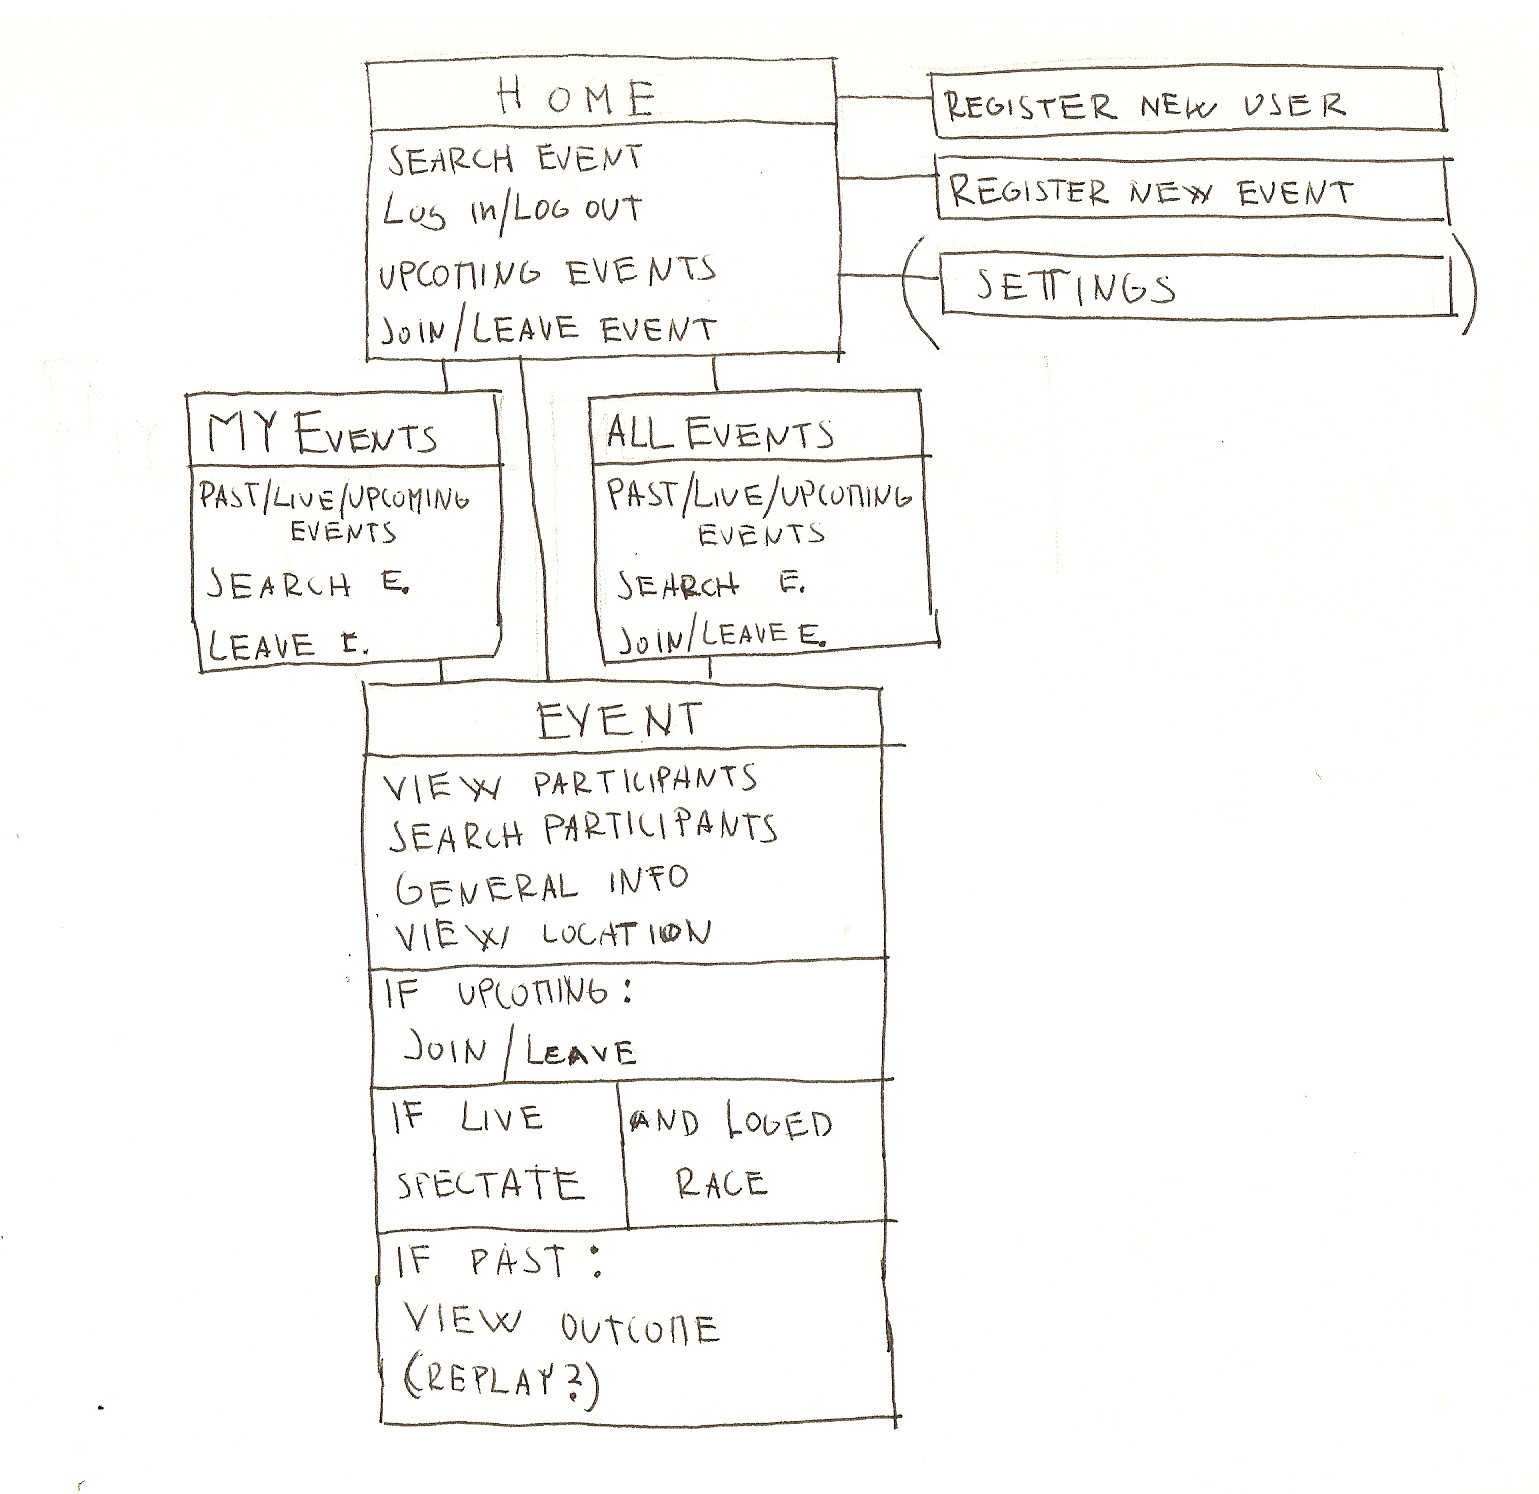 HOME
SEARCH EVENT
LOG in/LOG OUT
UPCOMING EVENTS
JOIN/LEAVE EVENT
REGISTER NEW USER
REGISTER NEW EVENT
( SETTINGS )
MY EVENTS
PAST/LIVE/UPCOMING
EVENTS
SEARCH E.
LEAVE E.
ALL EVENTS
PAST/LIVE/UPCOMING
EVENTS
SEARCH E.
JOIN/LEAVE E.
EVENT
VIEW PARTICIPANTS
SEARCH PARTICIPANTS
GENERAL INFO
VIEW LOCATION
IF UPCOMING:
JOIN/LEAVE
IF LIVE
SPECTATE
AND LOGED
RACE
IF PAST:
VIEW OUTCOME
(REPLAY?)